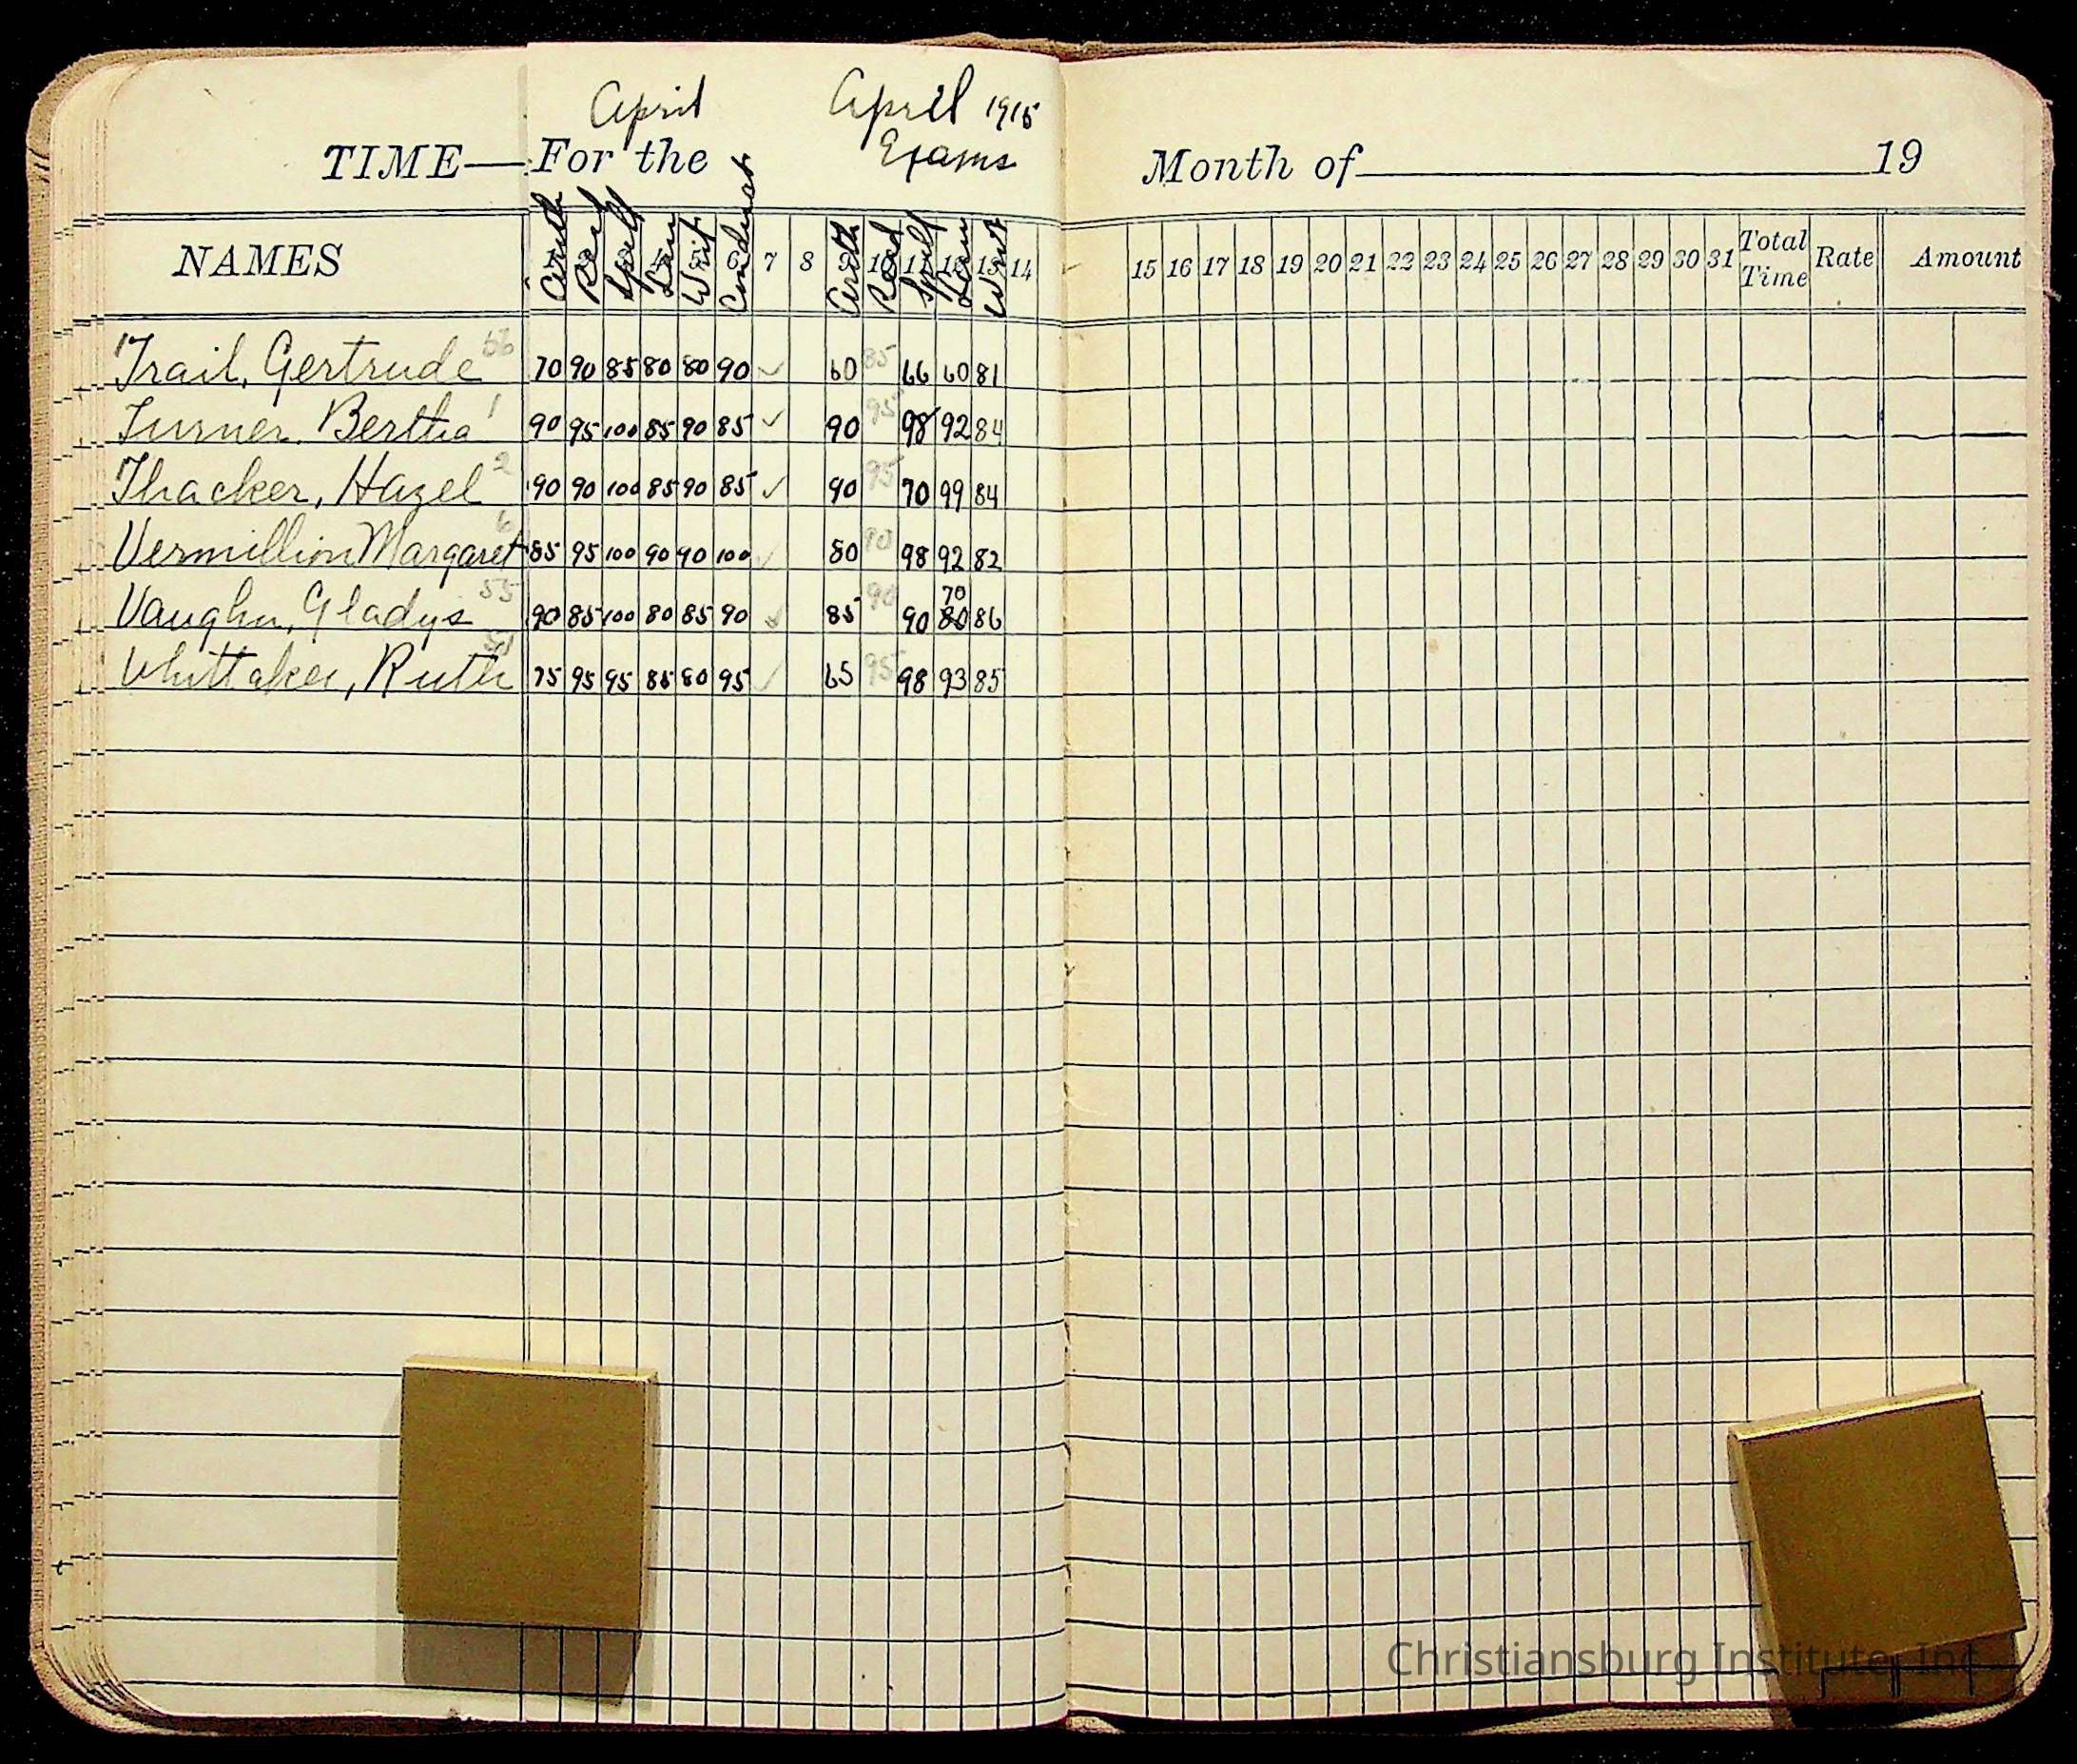 April April 1915
TIME—For the Exams Month of 19
NAMES Arith Read Spell Lan Writ Conduct 7 8 Arith Read Spell Lan Writ 14 15 16 17 18 19 20 21 22 23 24 25 26 27 28 29 30 31 Total Time Rate Amount
Trail, Gertrude 56 70 90 85 80 80 90 ✓ 60 85 66 60 81
Turner, Bertha 1 90 95 100 85 90 85 ✓ 90 95 98 92 84
Thacker, Hazel 2 90 90 100 85 90 85 ✓ 90 95 70 99 84
Vermillion Margaret 6 85 95 100 90 90 100 ✓ 80 90 98 92 82
70
Vaughn, Gladys 55 90 85 100 80 85 90 ✓ 85 90 90 80 86
Whittaker, Ruth 75 95 95 85 80 95 ✓ 65 95 98 93 85
Christiansburg Institute, Inc.